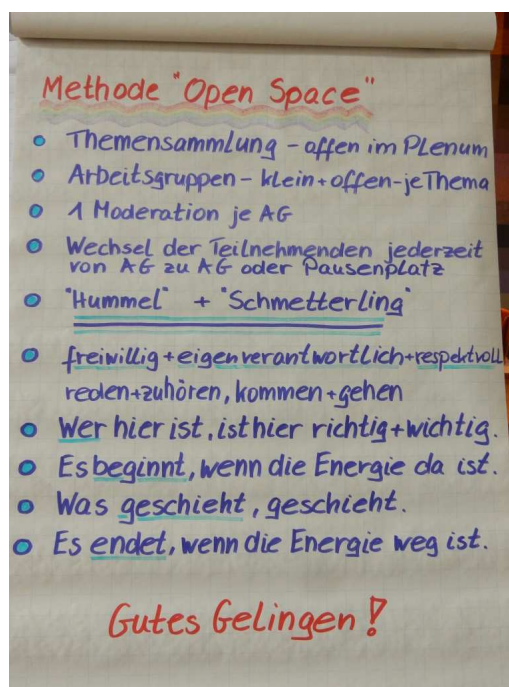 Methode "Open Space"
Themensammlung - offen im Plenum
Arbeitsgruppen - klein + offen - je Thema
1 Moderation je AG
Wechsel der Teilnehmenden jederzeit
von AG zu AG oder Pausenplatz
"Hummel" + "Schmetterling"
freiwillig + eigenverantwortlich + respektvoll
reden + zuhören, kommen + gehen
Wer hier ist, ist hier richtig + wichtig.
Es beginnt, wenn die Energie da ist.
Was geschieht, geschieht.
Es endet, wenn die Energie weg ist.
Gutes Gelingen!